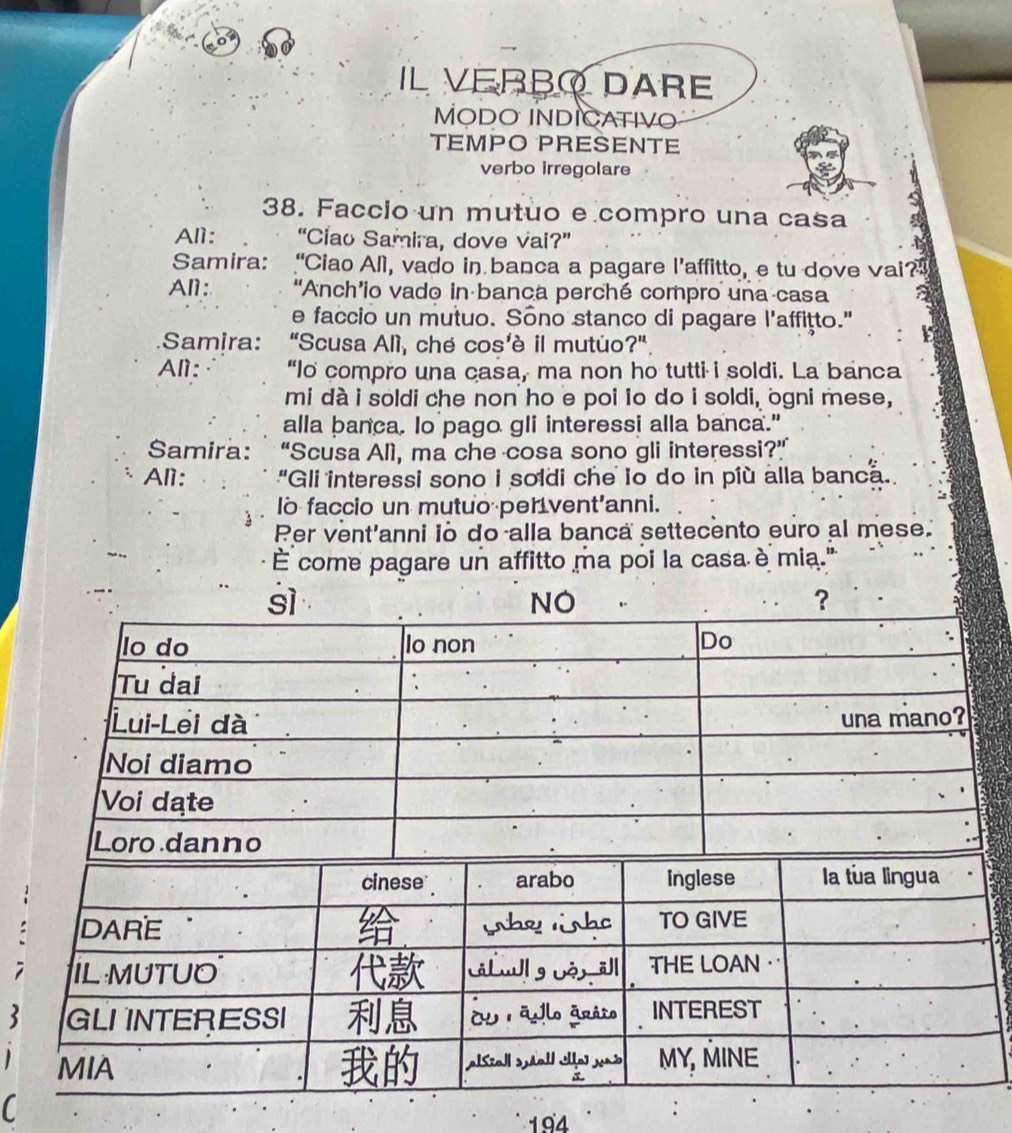 IL VERBO DARE
MODO INDICATIVO
TEMPO PRESENTE
verbo irregolare
38. Faccio un mutuo e compro una casa
Alì: "Ciao Samira, dove vai?"
Samira: "Ciao Alì, vado in banca a pagare l'affitto, e tu dove vai?"
Alì: "Anch'io vado in banca perché compro una casa
e faccio un mutuo. Sono stanco di pagare l'affitto."
Samira: "Scusa Alì, che cos'è il mutuo?"
Alì: "Io compro una casa, ma non ho tutti i soldi. La banca
mi dà i soldi che non ho e poi io do i soldi, ogni mese,
alla banca. Io pago gli interessi alla banca."
Samira: "Scusa Alì, ma che cosa sono gli interessi?"
Alì: "Gli interessi sono i soldi che io do in più alla banca.
Io faccio un mutuo per vent'anni.
Per vent'anni io do alla banca settecento euro al mese.
È come pagare un affitto ma poi la casa è mia."
SÌ NO ?
Io do Io non Do
Tu dai
Lui-Lei dà una mano?
Noi diamo
Voi date
Loro danno
cinese arabo inglese la tua lingua
DARE 给 TO GIVE
IL MUTUO 代款 THE LOAN
GLI INTERESSI 利息 INTEREST
MIA 我的 MY, MINE
194